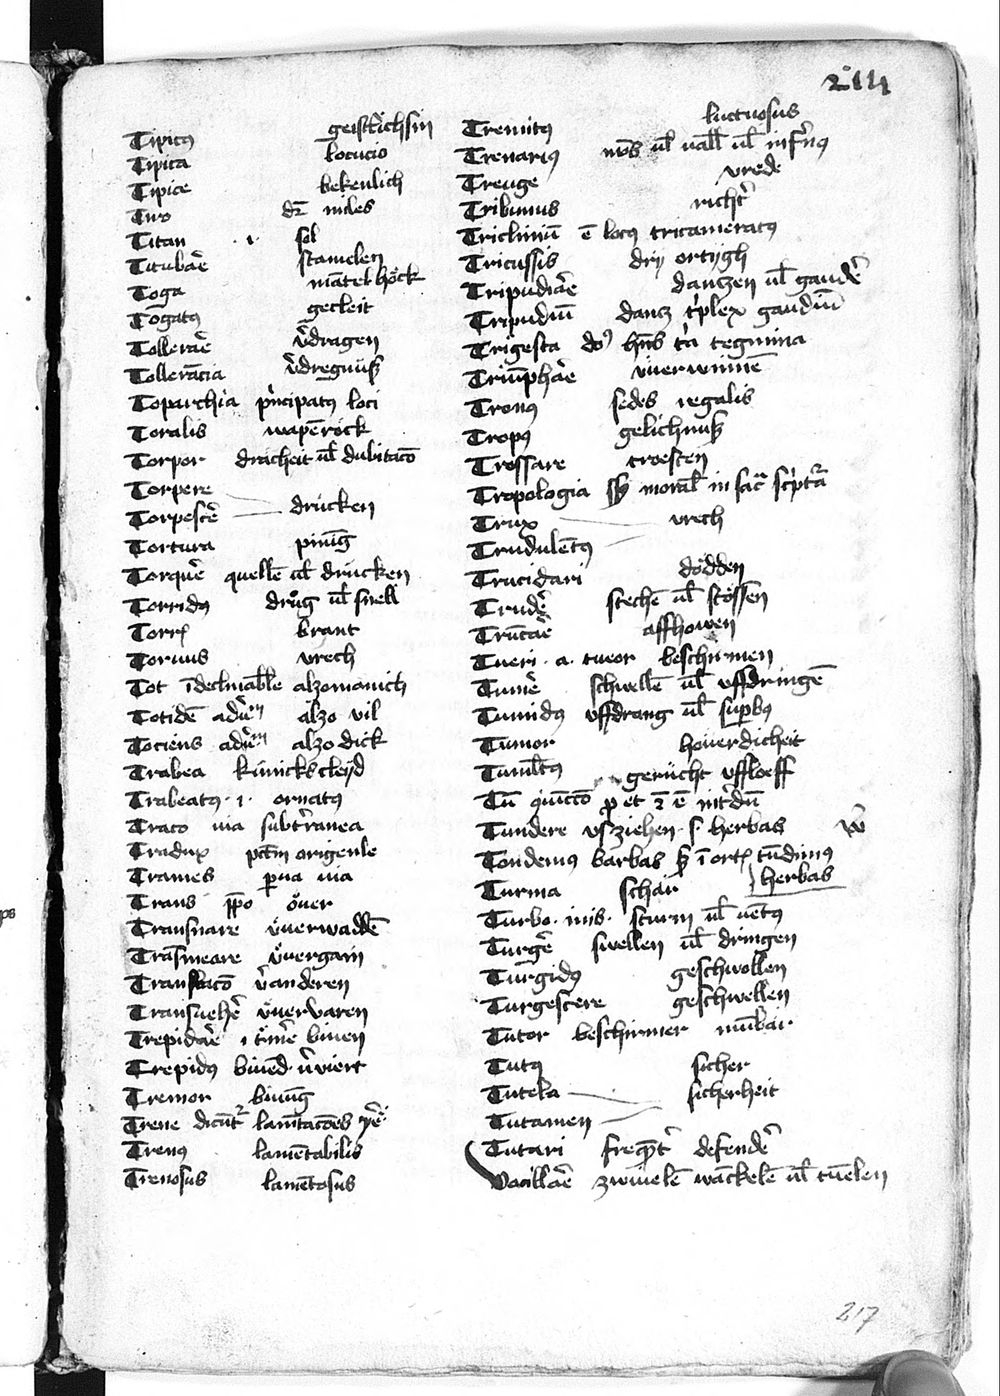 214
Tipicus geistlichsin
Tipica locucio
Tipice bekenlich
Tiro dr miles
Titan .i. sol
Titubare stamelen
Toga mantel hock
Togatus gecleit
Tollerare verdragen
Tollerancia verdregnuß
Toparchia principatus loci
Toralis wapenrock
Torpor dracheit vel dubitacio
Torpere
Torpescere drucken
Tortura pinung
Torquere quellen vel drucken
Torridus drug vel snell
Torris brant
Toruus vrech
Tot indeclinabile alzomanich
Totidem aduerbium alzo vil
Tociens aduerbium alzo dick
Trabea kunickscleyd
Trabeatus .i. ornatus
Traco via subterranea
Tradux originle
Trames parua via
Trans ppo ouer
Transnare uuerwadden
Transmeare uuergain
Translacio veranderen
Transuehere uuervaren
Trepidare i timere biuen
Trepidus biuend verviert
Tremor biuung
Trene dicuntur lamentaciones
Trenus lamentabilis
Trenosus lamentosus
Tremitus luctuosus
Trenarius mons vel vallis vel infernus
Treuge vrede
Tribunus richter
Triclinium est locus tricameratus
Tricussis dry ortygh
Tripudiare dantzen vel gaudere
Tripudium dantz triplex gaudium
Trigesta tegmina
Triumphare uuerwinnen
Tronus sedes regalis
Tropus gelichnuß
Trossare troesten
Tropologia moralis in sacra scriptura
Trux vrech
Trudulentus
Trucidari dodden
Trudere stechen vel stossen
Truncare affhowen
Tueri .a. tueor beschirmen
Tumere schwellen vel vffdringen
Tumidus vffdrang vel superbus
Tumor houerdicheit
Tumultus gerucht vffloeff
Tum
Tundere vsziehen .s. herbas
Tondemus barbas sed in ortis tundimus
herbas
Turma schar
Turbo .inis. sturm vel uentus
Turgere swellen vel dringen
Turgidus geschwollen
Turgescere geschwellen
Tutor beschirmer munbar
Tutus sicher
Tutela sicherheit
Tutamen
Tutari frequenter defendere
Vacillare zwiuelen wanckelen vel tumelen
217